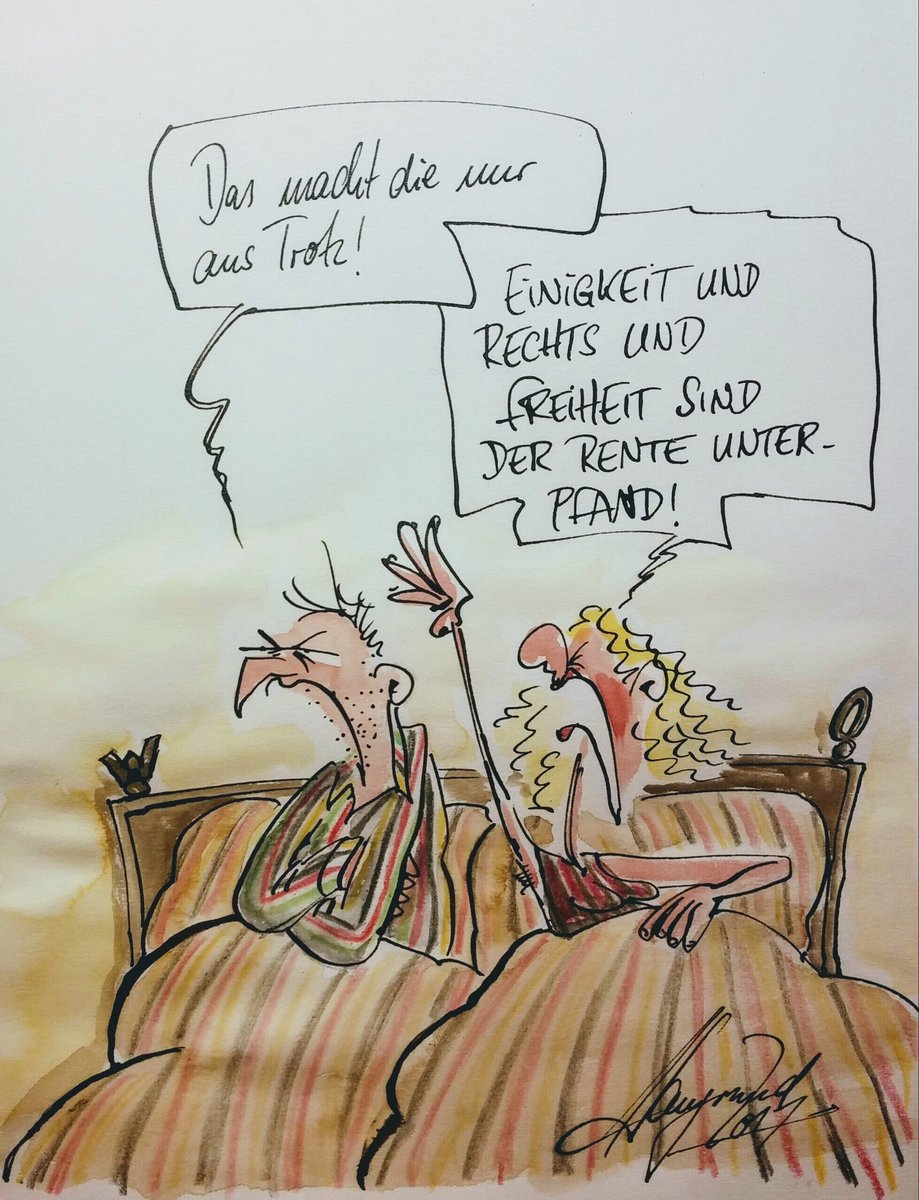 Das macht die nur
aus Trotz!
EINIGKEIT UND
RECHTS UND
FREIHEIT SIND
DER RENTE UNTER-
PFAND!